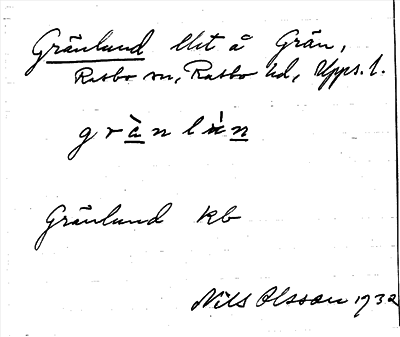 Gränlund llit å Grän,
Rasbo sn, Rasbo hd, Upps. l.
g r à n l ù n
Gränlund kb
Nils Olsson 1932